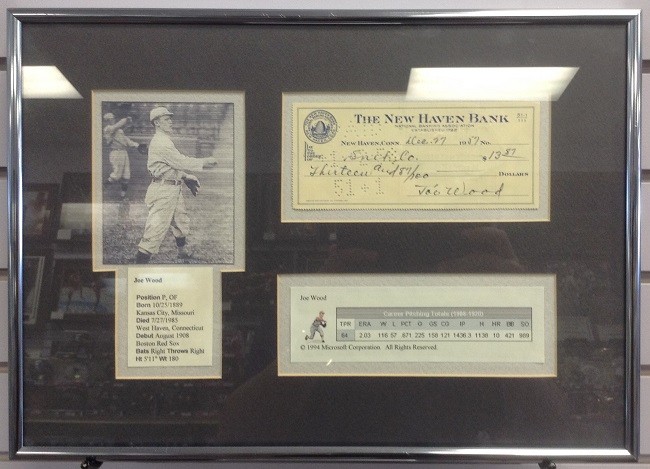 THE NEW HAVEN BANK
NATIONAL BANKING ASSOCIATION
NEW HAVEN, CONN. Dec. 27 1957 No.
Snet Co. $13.87
Thirteen and 87/100 DOLLARS
Joe Wood
Joe Wood
Position P, OF
Born 10/25/1889
Kansas City, Missouri
Died 7/27/1985
West Haven, Connecticut
Debut August 1908
Boston Red Sox
Bats Right Throws Right
Ht 5'11" Wt 180
Joe Wood
Career Pitching Totals (1908-1920)
TPR ERA W L PCT G GS CG IP H HR BB SO
84 2.03 116 57 .671 225 158 121 1436.3 1138 10 421 989
© 1994 Microsoft Corporation. All Rights Reserved.